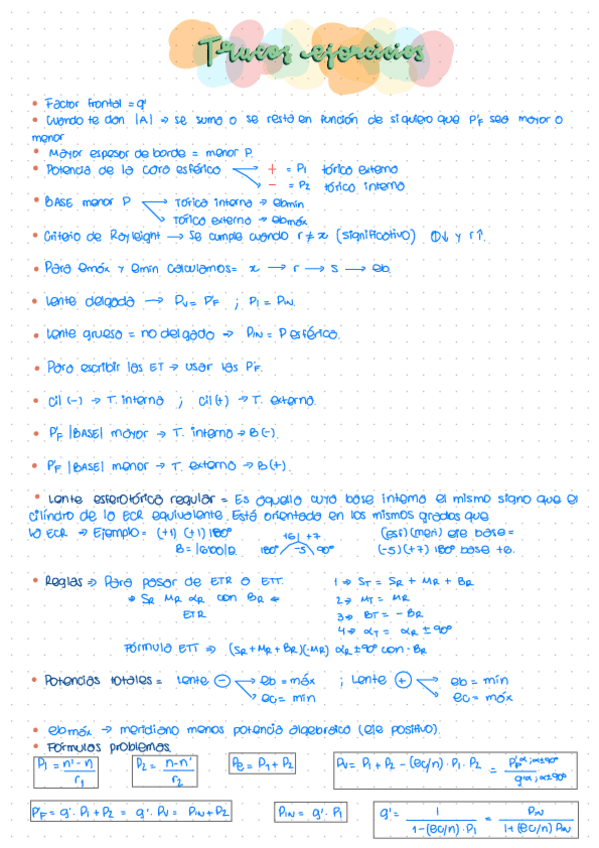 Trucos ejercicios
• Factor frontal = g'
• Cuando te dan |A| → se suma o se resta en función de si quiero que P'F sea mayor o
menor
• Mayor espesor de borde = menor P.
• Potencia de la cara esférica + = P1 tórico externo
- = P2 tórico interno
• BASE menor P Tórica interna → ebmin
Tórica externa → ebmáx
• Criterio de Rayleight → Se cumple cuando r ≠ x (significativo) Φ↓ y r↑.
• Para emáx y emin calculamos = x → r → s → eb.
• Lente delgada → Pv = P'F ; P1 = PIN.
• Lente gruesa = no delgada → PIN = P esférica.
• Para escribir las ET → usar las P'F.
• cil (-) → T. interna ; cil (+) → T. externa.
• P'F |BASE| mayor → T. interna → B(-).
• P'F |BASE| menor → T. externa → B(+).
• Lente esferotórica regular = Es aquella cuya base interna el mismo signo que el
cilindro de la ECR equivalente. Está orientada en los mismos grados que
la ECR → Ejemplo = (+1) (+1) 180° |6| +7 (esf) (meri) eje base =
180° -5 90° (-5) (+7) 180° base +6.
• Reglas → Para pasar de ETR a ETT. 1 → ST = SR + MR + BR
→ SR MR αR con BR ← 2 → MT = MR
ETR 3 → BT = - BR
4 → αT = αR ± 90°
Fórmula ETT → (SR + MR + BR) (-MR) αR ± 90° con - BR
• Potencias totales = Lente - eb = máx ; Lente + eb = mín
ec = mín ec = máx
• ebmáx → meridiano menos potencia algebraica (eje positivo).
• Fórmulas problemas.
P1 = n' - n / r1 P2 = n - n' / r2 Pe = P1 + P2 Pv = P1 + P2 - (ec/n) · P1 · P2 = P'F α; α±90° / g'α; α±90°
P'F = g' · P1 + P2 = g' · Pv = PIN + P2 PIN = g' · P1 g' = 1 / 1 - (ec/n) · P1 = PIN / 1 + (ec/n) PIN